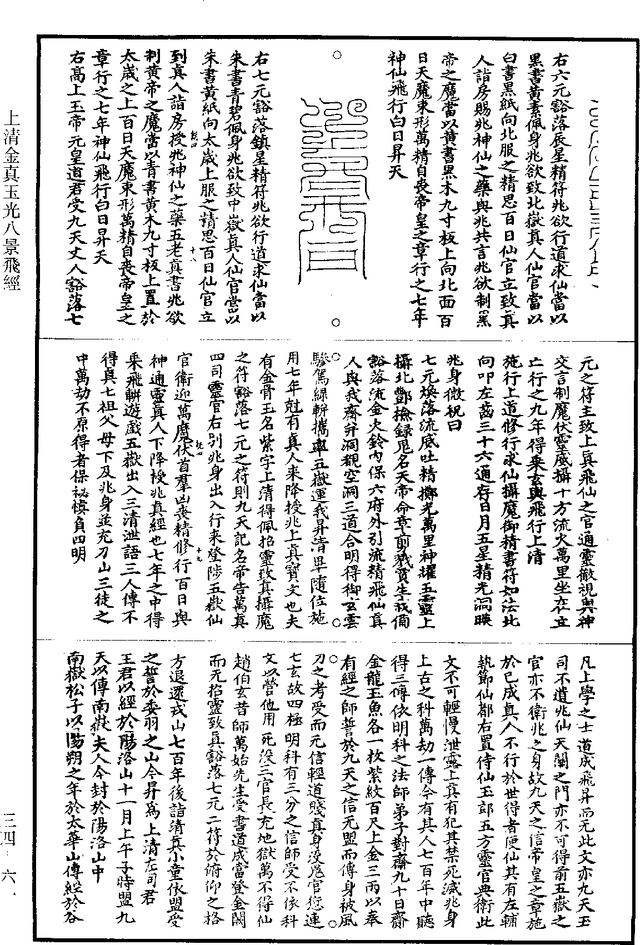 右六元豁落辰星精符兆欲行道求仙當以
黑書黃素佩身兆欲致北嶽真人仙官當以
白書黑紙向北服之精思百日仙官立致真
人詣房賜兆神仙之藥與兆共言兆欲制黑
帝之魔當以黃書黑木九寸板上向北面百
日天魔束形萬精自喪帝皇之章行之七年
神仙飛行白日昇天
右七元豁落鎮星精符兆欲行道求仙當以
朱書青碧佩身兆欲致中嶽真人仙官當以
朱書黃紙向太歲上服之精思百日仙官立
到真人詣房授兆神仙之藥五老真書兆欲
制黃帝之魔當以青書黃木九寸板上置於
太歲之上百日天魔束形萬精自喪帝皇之
章行之七年神仙飛行白日昇天
右高上玉帝元皇道君受九天丈人豁落七
元之符主致上真飛仙之官通靈徹視與神
交言制魔伏靈威攝十方流火萬里坐在立
亡行之九年得乘玄輿飛行上清
施行上道修行求仙攝魔御精書符如法北
向叩左齒三十六通存日月五星精光洞映
兆身微祝曰
七元煥落流威吐精擲光萬里神耀五靈上
攝北酆檢錄鬼名天帝命章翦戮賓生我備
豁落流金火鈴內保六府外引流精飛仙真
人與我齋并洞觀空洞三道合明得御玄雲
驂駕綠軿攜率五嶽運我昇清畢隨位施
用七年剋有真人來降授兆上真寶文也夫
有金骨玉名紫字上清得佩招靈致真攝魔
之符豁落七元之符則九天記名帝告萬真
四司靈官右別兆身出入行來登陟五嶽仙
官衛迎萬魔伏首羣凶喪精修行百日與
神通靈真人下降授兆真經也七年之中得
乘飛軿遊戲五嶽出入三清泄語三人傳不
得真七祖父母下及兆身並充刀山三徒之
中萬劫不原得者保祕慎負四明
凡上學之士道成飛昇而无此文亦九天玉
司不遣兆仙天關之門亦不可得前五嶽之
官亦不衛兆之身故九天之信帝皇之章施
於已成真人不行於世得者便仙其有左輔
執節仙都右置侍仙玉郎五方靈官典衛此
文不可輕慢泄露上真有犯其禁死滅兆身
上古之科萬劫一傳令有其人七百年中聽
得三傳依明科之法師弟子對齋九十日齋
金龍玉魚各一枚紫紋百尺上金三兩以奉
有經之師誓於九天之信无盟而傳身被風
刀之考受而元信輕道賤真身沒鬼官愆連
七玄故四極明科有三分之信師受不依科
文以營他用死沒三官長充地獄萬不得仙
趙伯玄昔師萬始先生受書道成當登金闕
而无招靈致真豁落七元二符於俯仰之格
方退還戎山七百年後詣清真小童依盟受
之誓於委羽之山今昇為上清左司君
王君以經於陽洛山十一月上午子時盟九
天以傳南嶽夫人今封於陽洛山中
南嶽松子以陽朔之年於太華山傳經於谷
上清金真玉光八景飛經
三四·六一